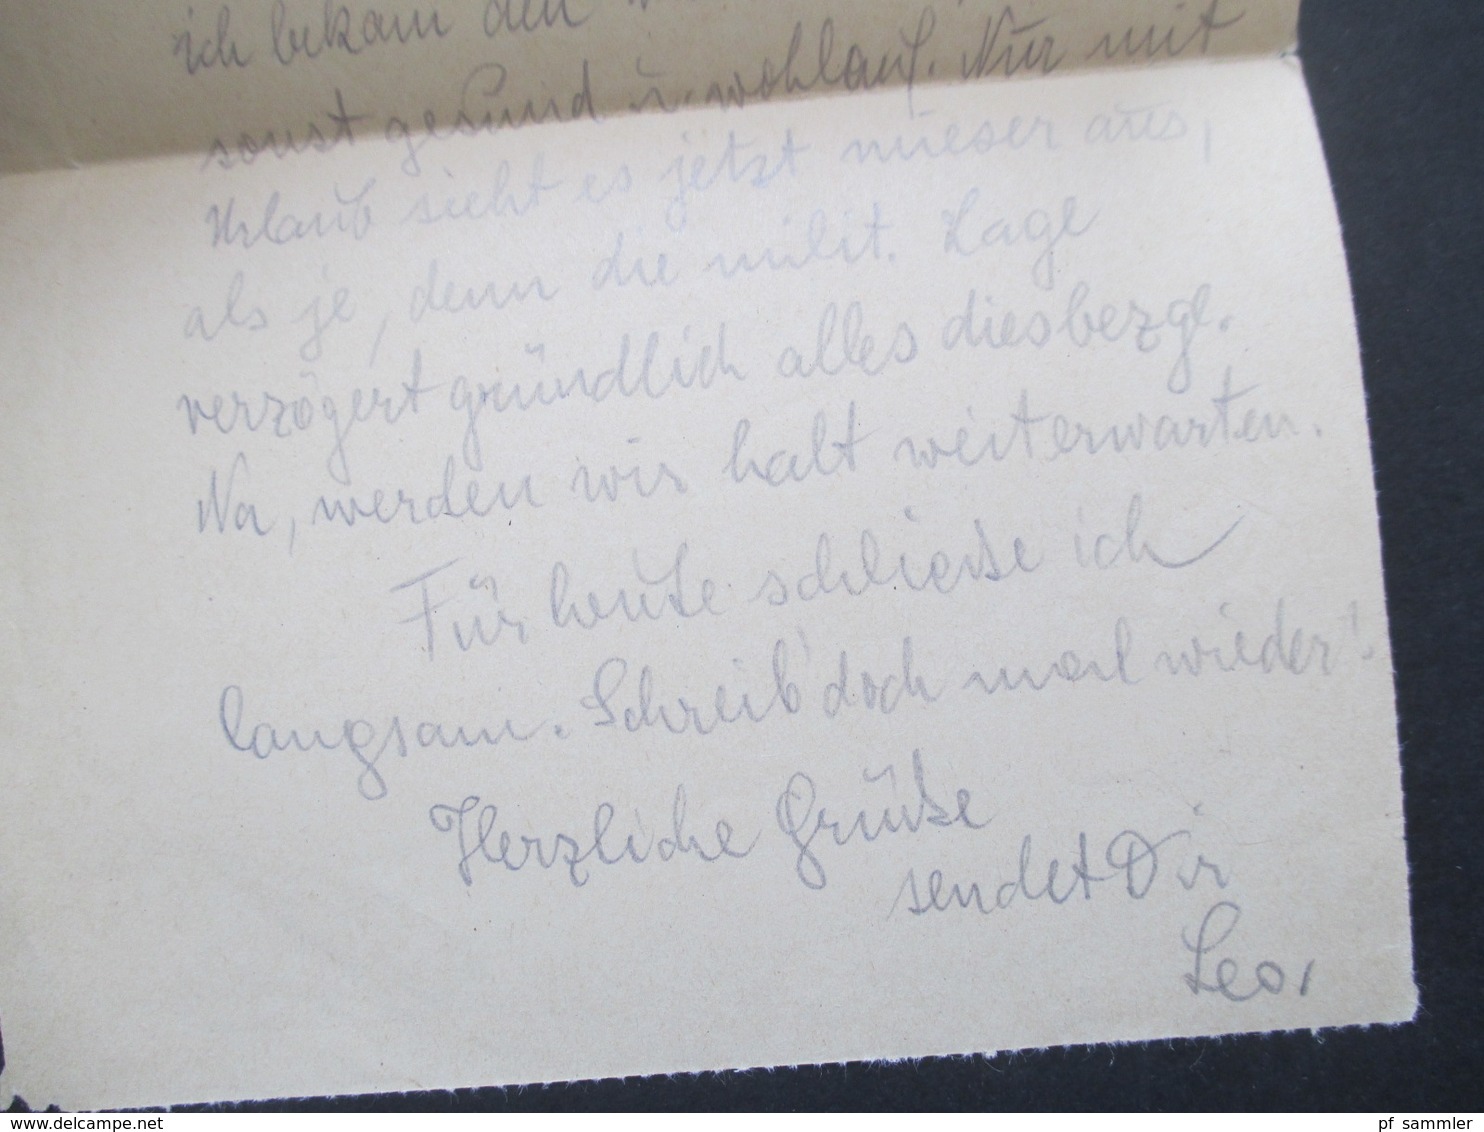 ich bekam den
sonst gesund u. wohlauf. Nur mit
Urlaub sieht es jetzt mieser aus,
als je, denn die milit. Lage
verzögert gründlich alles diesbezgl.
Na, werden wir halt weiterwarten.
Für heute schließe ich
langsam. Schreib' doch mal wieder!
Herzliche Grüße
sendet Dir
Leo.
www.delcampe.net
pf_sammler